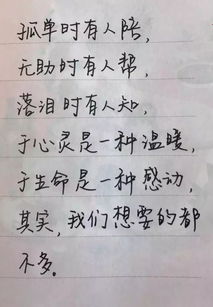 孤单时有人陪，
无助时有人帮，
落泪时有人知，
于心灵是一种温暖，
于生命是一种感动，
其实，我们想要的都
不多。